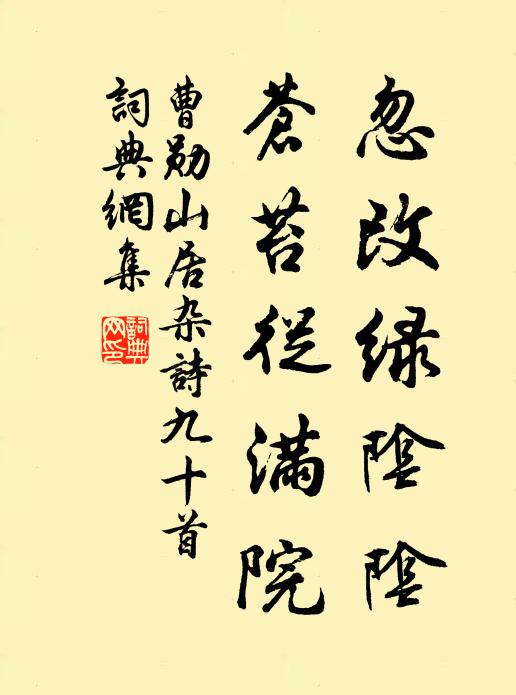 忽改绿陰陰
蒼苔從满院
曹勋山居杂詩九十首
詞典網集
詞典
网印